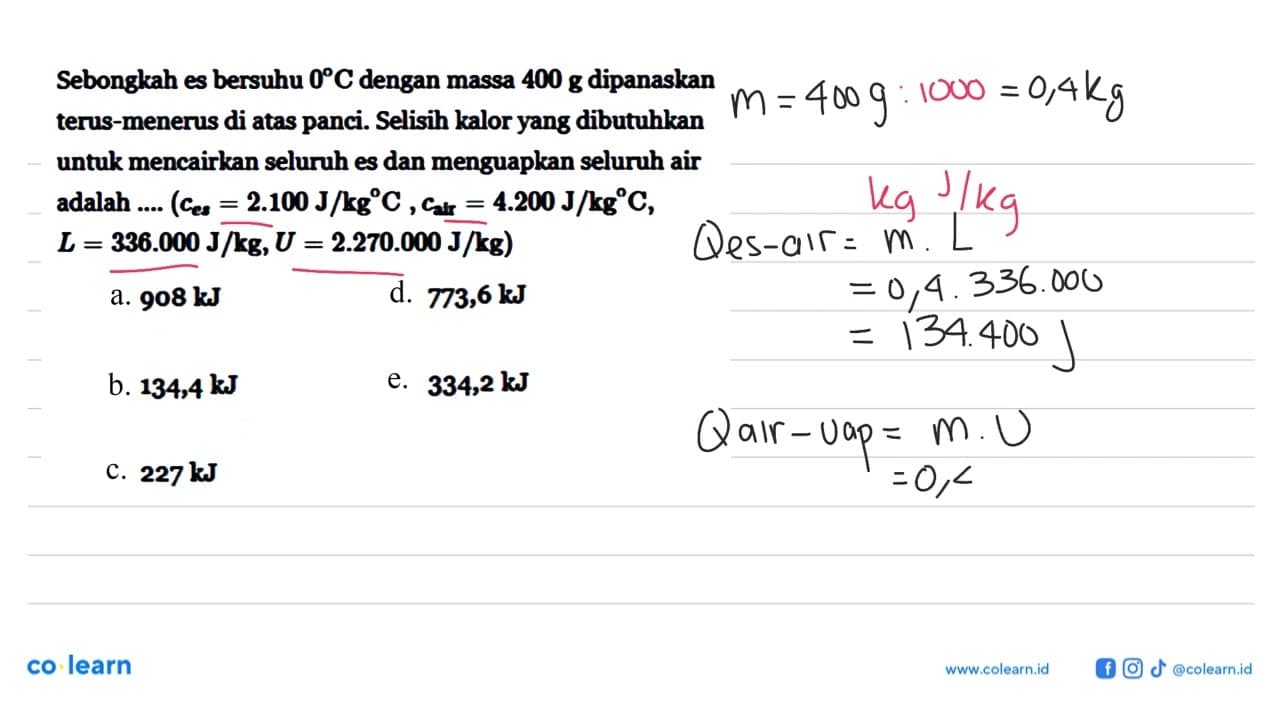 Sebongkah es bersuhu 0°C dengan massa 400 g dipanaskan
terus-menerus di atas panci. Selisih kalor yang dibutuhkan
untuk mencairkan seluruh es dan menguapkan seluruh air
adalah .... (c_es = 2.100 J/kg°C , c_air = 4.200 J/kg°C,
L = 336.000 J/kg, U = 2.270.000 J/kg)
a. 908 kJ
d. 773,6 kJ
b. 134,4 kJ
e. 334,2 kJ
c. 227 kJ
m = 400 g : 1000 = 0,4 kg
kg J/kg
Qes-air = m . L
= 0,4 . 336.000
= 134.400 J
Qair-uap = m . U
= 0,
co·learn
www.colearn.id
@colearn.id